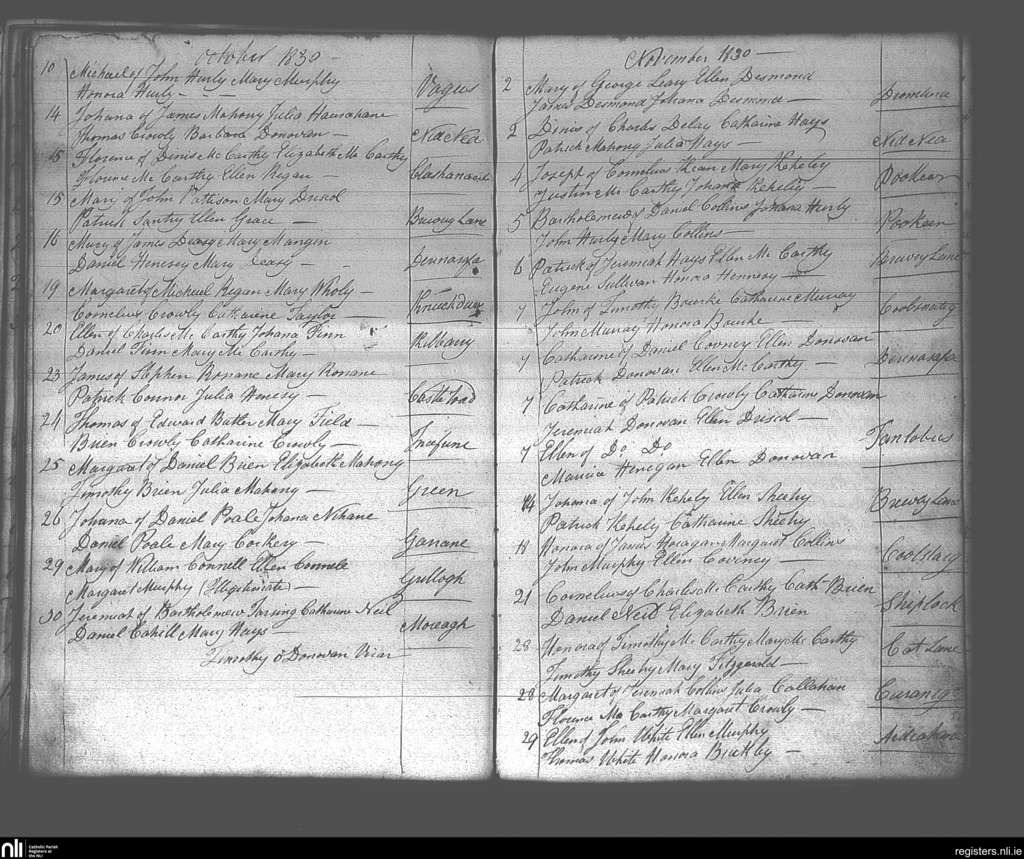 October 1830
10 Michael of John Hurly Mary Murphy
Honora Hurly
Vagus
14 Johana of James Mahony Julia Hanrahane
Thomas Crowly Barbara Donovan
Ned Nea
15 Florence of Dinis McCarthy Elizabeth McCarthy
Florence McCarthy Ellen Regan
15 Mary of John Pattison Mary Driscol
Patrick Santry Ellen Grace
Brewey Lane
16 Mary of James Deasy Mary Mangin
Daniel Henesey Mary Leary
19 Margaret of Michael Regan Mary Wholy
Cornelius Crowly Catharine Taylor
20 Ellen of Charles McCarthy Johana Finn
Daniel Finn Mary McCarthy
Kilbany
23 James of Stephen Ronane Mary Ronane
Patrick Connor Julia Henesy
Castle road
24 Thomas of Edward Butler Mary Field
Brien Crowly Catharine Crowly
Incefune
25 Margaret of Daniel Brien Elizabeth Mahony
Timothy Brien Julia Mahony
Green
26 Johana of Daniel Poale Johana Nihane
Daniel Poale Mary Corkery
Garrane
29 Mary of William Connell Ellen Connele
Margaret Murphy (Illegitimate)
Gullogh
30 Jeremiah of Bartholemew Catharine Neil
Daniel Cahill Mary Hays
Moreagh
Timothy O'Donovan Vicar
November 1830
2 Mary of George Leary Ellen Desmond
James Desmond Johana Desmond
2 Dinis of Charles Delay Catharine Hays
Patrick Mahony Julia Hays
Ned Nea
4 Joseph of Cornelius Kean Mary Keheley
Justin McCarthy Johana Kehelty
Pookeen
5 Bartholemew of Daniel Collins Johana Hurly
John Hurly Mary Collins
Pookeen
6 Patrick of Jeremiah Hays Ellen McCarthy
Eugene Sullivan Honora Hennesy
Brewey Lane
7 John of Timothy Bourke Catharine Murray
John Murray Honora Bourke
7 Catharine of Daniel Coveney Ellen Donovan
Patrick Donovan Ellen McCarthy
7 Catharine of Patrick Crowly Catharine Donovan
Jeremiah Donovan Ellen Driscol
Fanlobus
7 Ellen of Do Do
Maurice Henegan Ellen Donovan
14 Johana of John Kehely Ellen Sheehy
Patrick Kehely Catharine Sheehy
Brewey Lane
18 Honora of James Horagan Margaret Collins
John Murphy Ellen Coveney
21 Cornelius of Charles McCarthy Cath Brien
Daniel Neil Elizabeth Brien
Shiplock
28 Honora of Timothy McCarthy Mary McCarthy
Timothy Sheehy Mary Fitzgerald
Cat Lane
28 Margaret of Jeremiah Collins Julia Callahan
Florence McCarthy Margaret Crowly
29 Ellen of John White Ellen Murphy
Thomas White Honora Buckley
nli Catholic Parish
Registers at
the NLI
registers.nli.ie